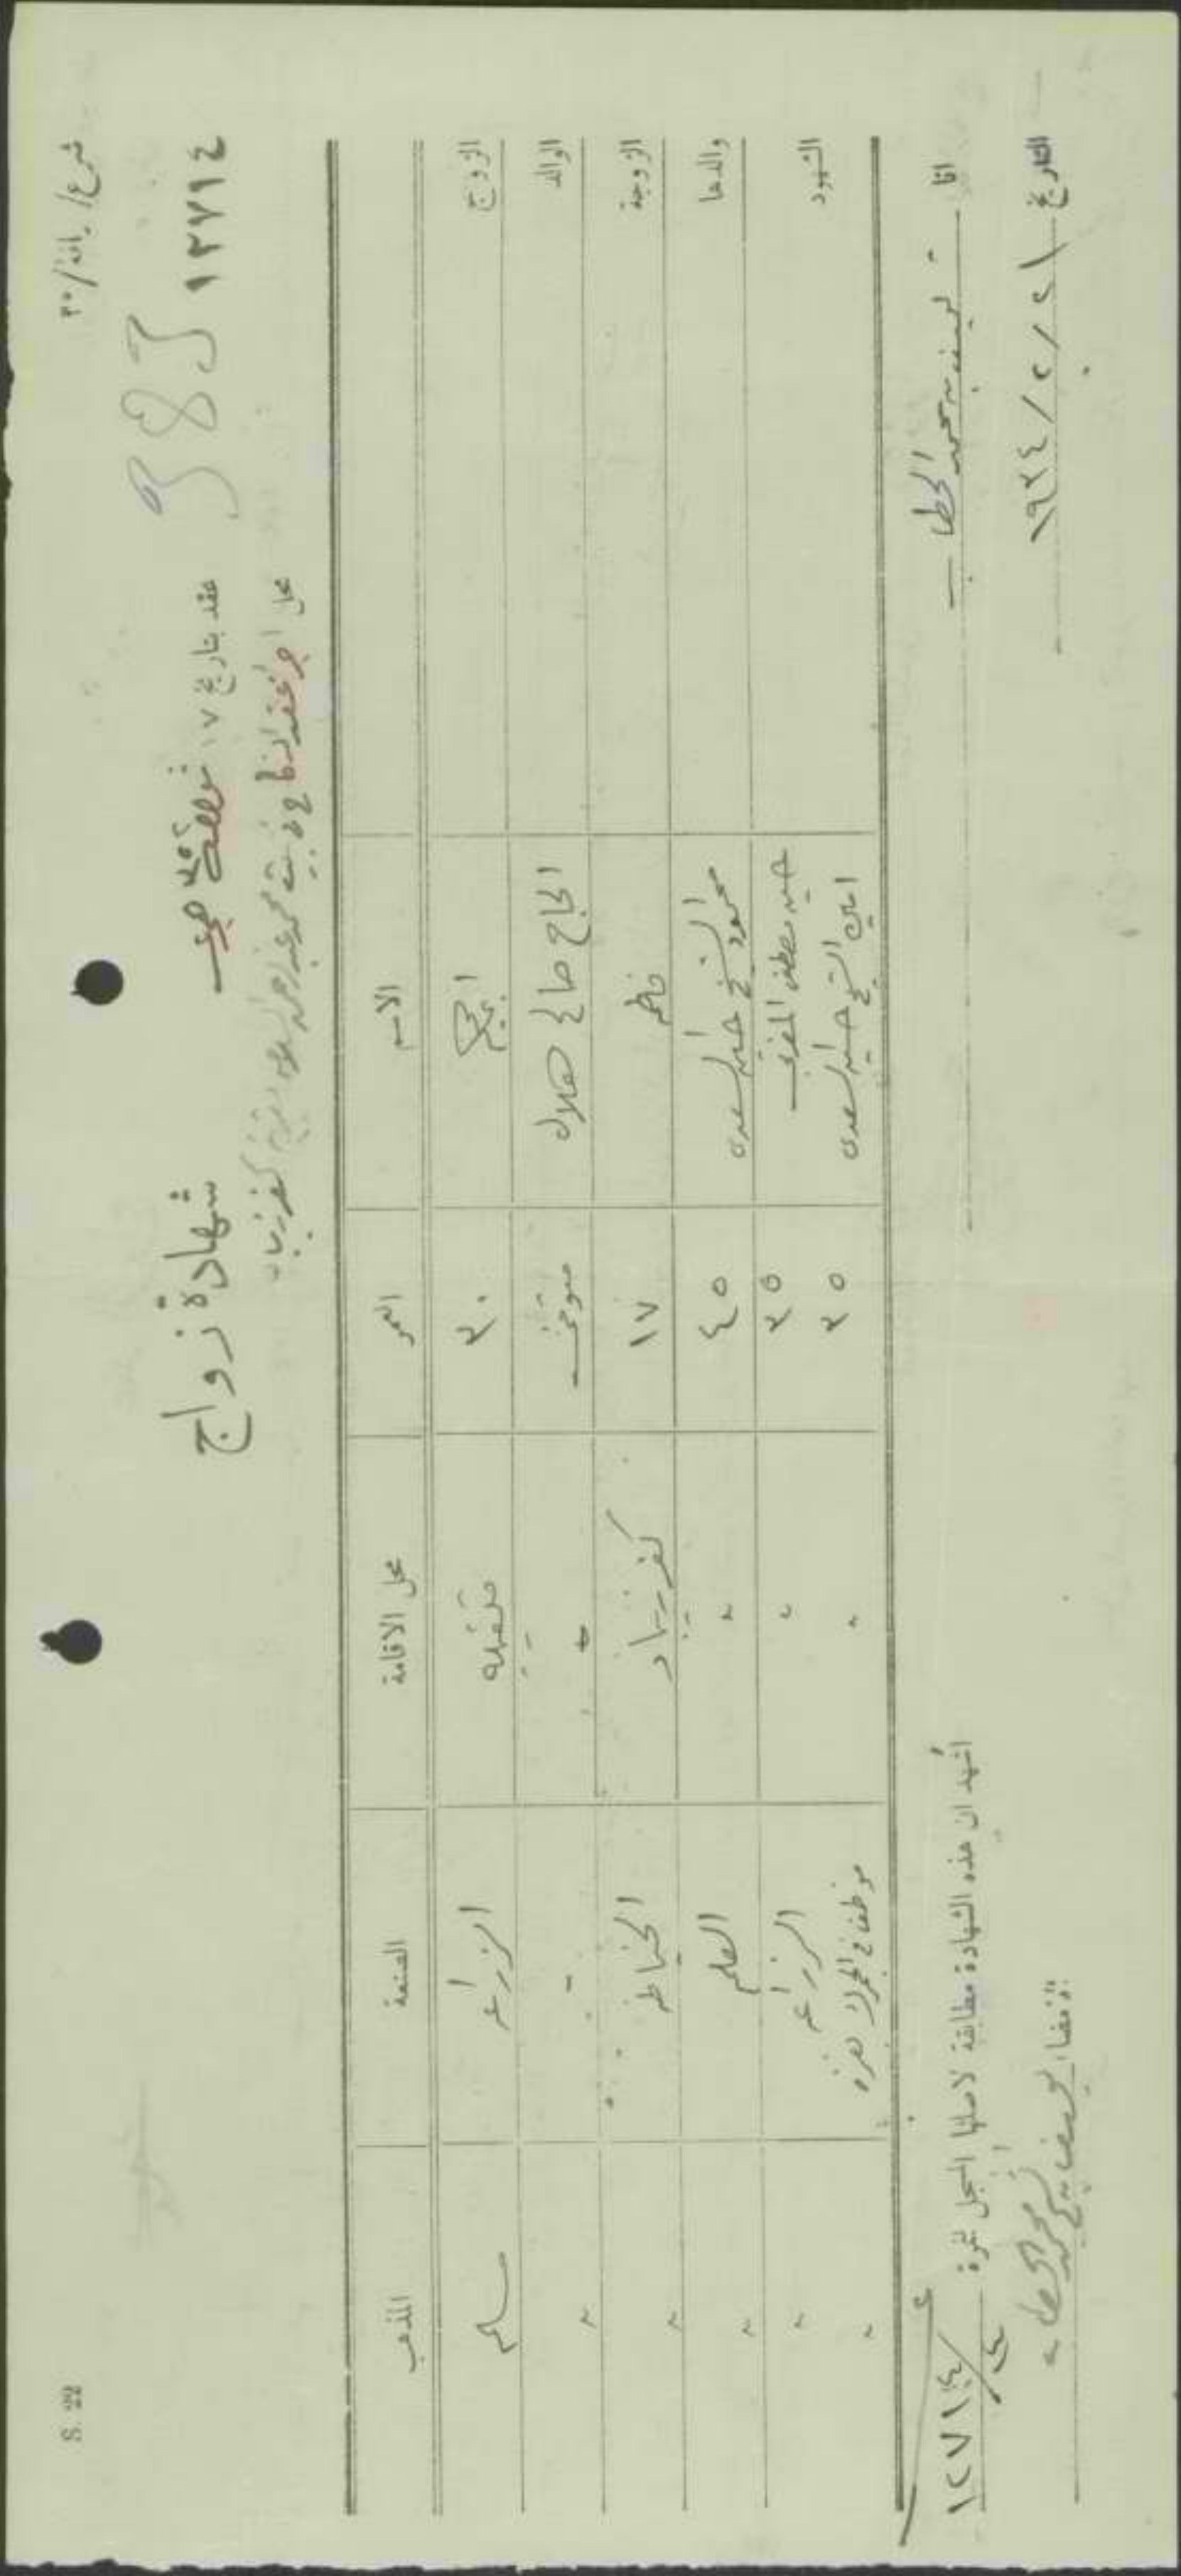 شرع/ رانه/ ٣٠
S. 22
١٢٧١٤
383
شهادة زواج
عقد بتاريخ ١٧ شوال
محل اجراء عقد النكاح في بيت محمد عبد الرحمن كفر زيباد
الاسم العمر محل الاقامة الصنعة المذهب
الزوج ٣٠ قلقيليه الزراعه مسلم
الوالد الحاج صالح هلال متوفي " - "
الزوجة فاطمه ١٧ كفر زيباد الخياطه "
والدها محمود الشيخ خليل السعدي ٤٥ " العلم "
الشهود مصطفى ٣٥ " الزراعه "
امين الشيخ خليل السعدي ٣٥ " موظف في الجمرك بغزه "
انا يوسف بن محمد الخطاب
اشهد ان هذه الشهادة مطابقة لاصلها المسجل نمرة ١٢٧١٤/٣٤
التاريخ ٢١ / ٢ / ٩٣٤
الامضاء يوسف بن محمد الخطاب